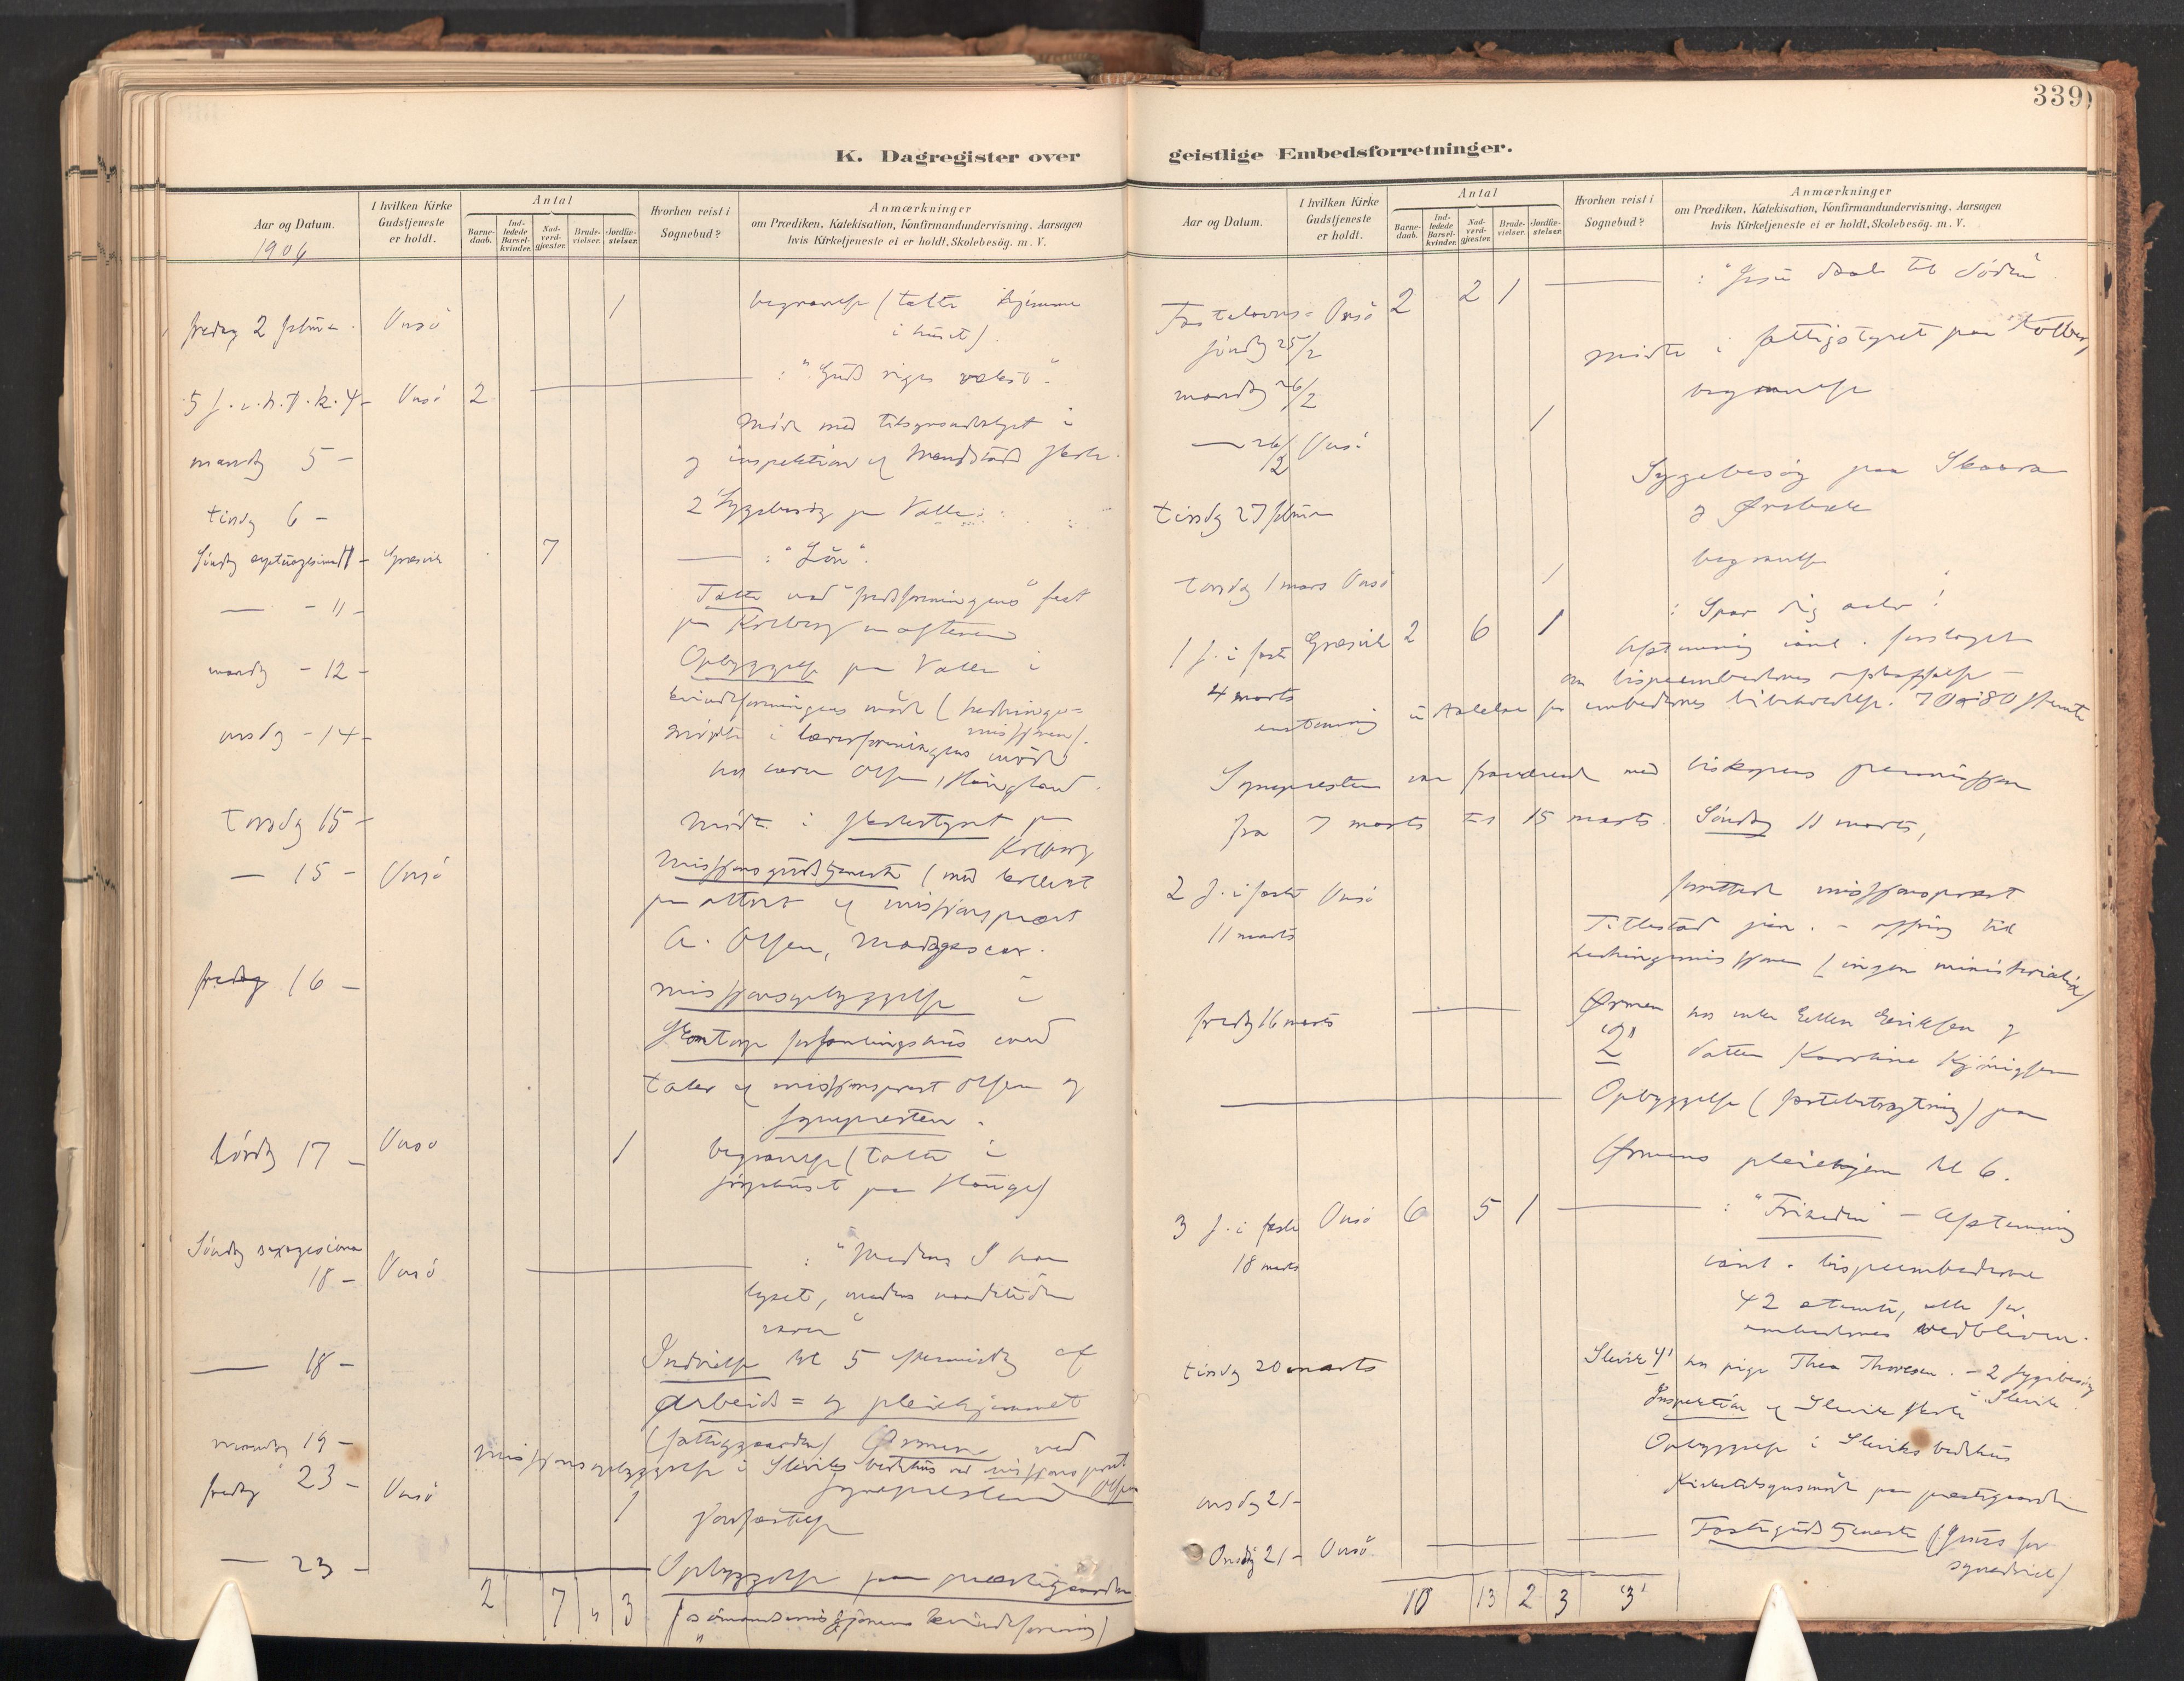 339
K. Dagregister over
Aar og Datum.
I hvilken Kirke Gudstjeneste er holdt.
Antal
Barnedaab.
Indledede Barselkvinder.
Nadverdgjester.
Brudevielser.
Jordfæstelser.
Hvorhen reist i Sognebud?
Anmærkninger
om Prædiken, Katekisation, Konfirmandundervisning, Aarsagen
hvis Kirketjeneste ei er holdt, Skolebesög. m. V.
1906
fredag 2 februar. Onsö 1 begravelse (talte hjemme
i huset).
5 s. e. h. t. k. 4 - Onsö 2 : "Guds riges vækst".
mandag 5 - Möde med tilsynsudvalget i
og inspektion af skole.
tirsdag 6 - 2 Sygebesög paa Valle.
Söndag septuagesima 11 - Græsvik 7 : "Lön".
- 11 - Talte ved "fredsforeningens" fest
paa Kolberg om aftenen
mandag - 12 - Opbyggelse paa Valle i
kvindeforeningens möde (hedninge=
missionen).
onsdag - 14 - Mödte i lærerforeningens möde
hos lærer Olsen,
torsdag 15 - Mödte i skolestyret paa
Kolberg
- 15 - Onsö Missionsgudstjeneste (med
af missionsprest
A. Olsen, Madagascar.
fredag 16 - Missionsopbyggelse i
forsamlingshus med
taler af missionsprest Olsen og
sognepresten.
lördag 17 - Onsö 1 begravelse (talte i
paa Hauge)
Söndag sexagesima
18 - Onsö : "Medens I har
lyset, medens naadetiden
varer"
- 18 - Indvielse kl 5 eftermiddag af
Arbeids= og pleiehjemmet
(fattiggaarden) Ørmen ved
sognepresten
mandag 19 - Missionsopbyggelse i Sleviks bedehus ved missionsprest
Olsen
fredag 23 - Onsö 1 Jordfæstelse
- 23 - Opbyggelse paa prestegaarden
2 7 " 3 (sömandsmissionens kvindeforening)
geistlige Embedsforretninger.
Aar og Datum.
I hvilken Kirke Gudstjeneste er holdt.
Antal
Barnedaab.
Indledede Barselkvinder.
Nadverdgjester.
Brudevielser.
Jordfæstelser.
Hvorhen reist i Sognebud?
Anmærkninger
om Prædiken, Katekisation, Konfirmandundervisning, Aarsagen
hvis Kirketjeneste ei er holdt, Skolebesög. m. V.
Fastelavns= Onsö 2 2 1 : "Jesu daab til döden"
söndag 25/2
mandag 26/2 mödte i fattigstyret paa Kolberg
- 26/2 Onsö 1 begravelse
tirsdag 27 februar Sygebesög paa Skaara
og Ørebæk
torsdag 1 mars Onsö 1 begravelse
1 s. i faste Græsvik 2 6 1 : Spar dig selv!
4 marts Afstemning forslaget
om bispeembedernes afskaffelse -
enstemmig for embedernes bibeholdelse. 70 a 80 stemte
Sognepresten var fraværende med biskopens permission
fra 7 marts til 15 marts. Söndag 11 marts,
2 s. i faste Onsö forrettede missionsprest
11 marts Tillestad jun. - offring til
hedningemissionen (ingen ministerialia)
fredag 16 marts Ørmen hos enke Ellen Eriksen og
"2" datter Karoline
Opbyggelse (fastebetragtning) paa
Ørmens pleiehjem kl 6.
3 s. i faste Onsö 6 5 1 : "Friheden" - Afstemning
18 marts bispeembederne
42 stemte, alle for
embedernes vedbliven.
tirsdag 20 marts Slevik "1" hos pige Thea Thoresen. - 2 sygebesög
i Slevik.
Inspektion af Slevik skole
Opbyggelse i Sleviks bedehus
onsdag 21 - Kirketilsynsmöde paa prestegaarden
Onsdag 21 - Onsö Fastegudstjeneste (Jesus for
synedriet)
10 13 2 3 "3"